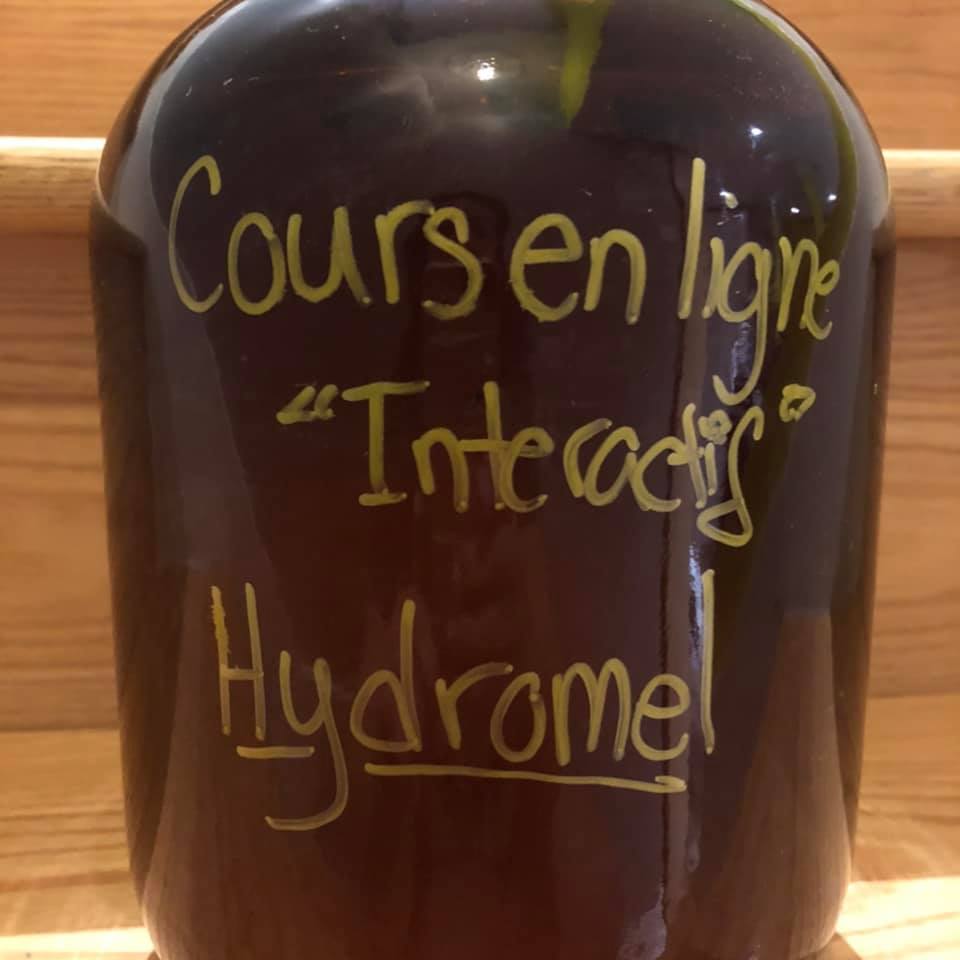 Cours en ligne
"Interactif"
Hydromel